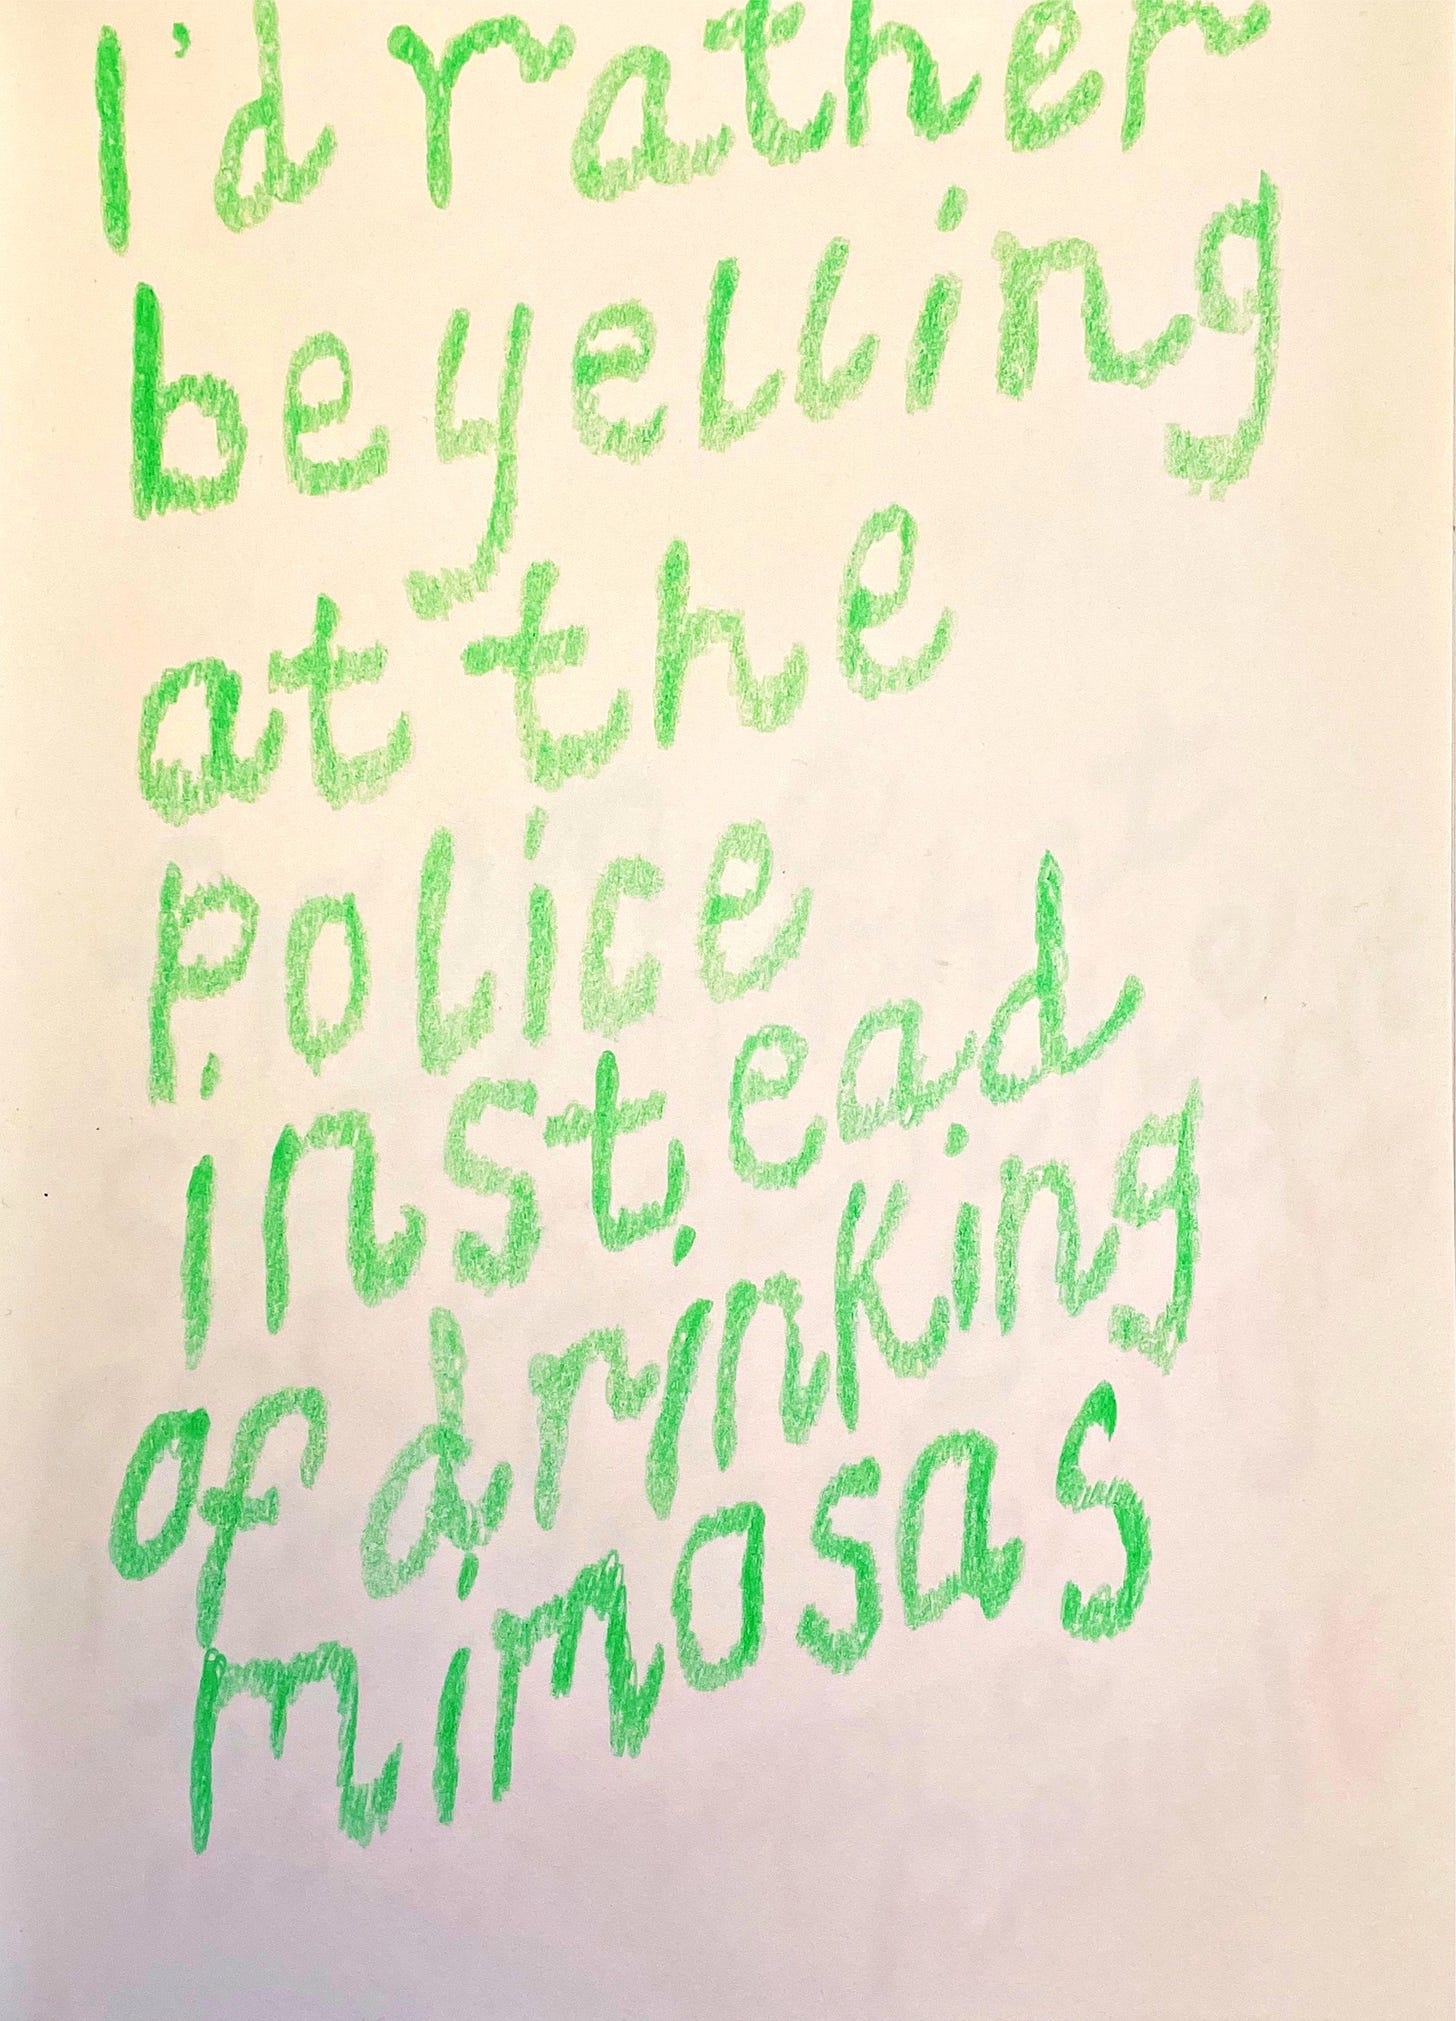 I'd rather
be yelling
at the
police
instead
of drinking
mimosas